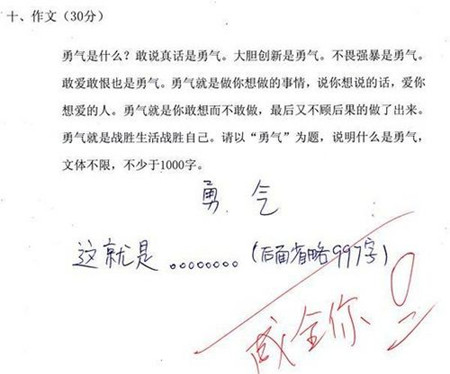 十、作文（30分）
勇气是什么？敢说真话是勇气。大胆创新是勇气。不畏强暴是勇气。
敢爱敢恨也是勇气。勇气就是做你想做的事情，说你想说的话，爱你
想爱的人。勇气就是你敢想而不敢做，最后又不顾后果的做了出来。
勇气就是战胜生活战胜自己。请以“勇气”为题，说明什么是勇气，
文体不限，不少于1000字。
勇气
这就是。。。。。。。。(后面省略997字)
成全你 0